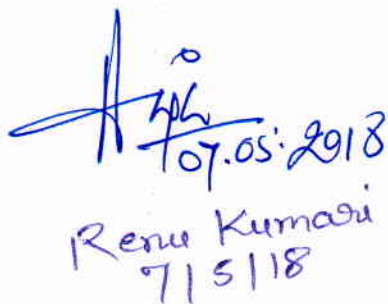 07.05.2018
Renu Kumari
7/5/18